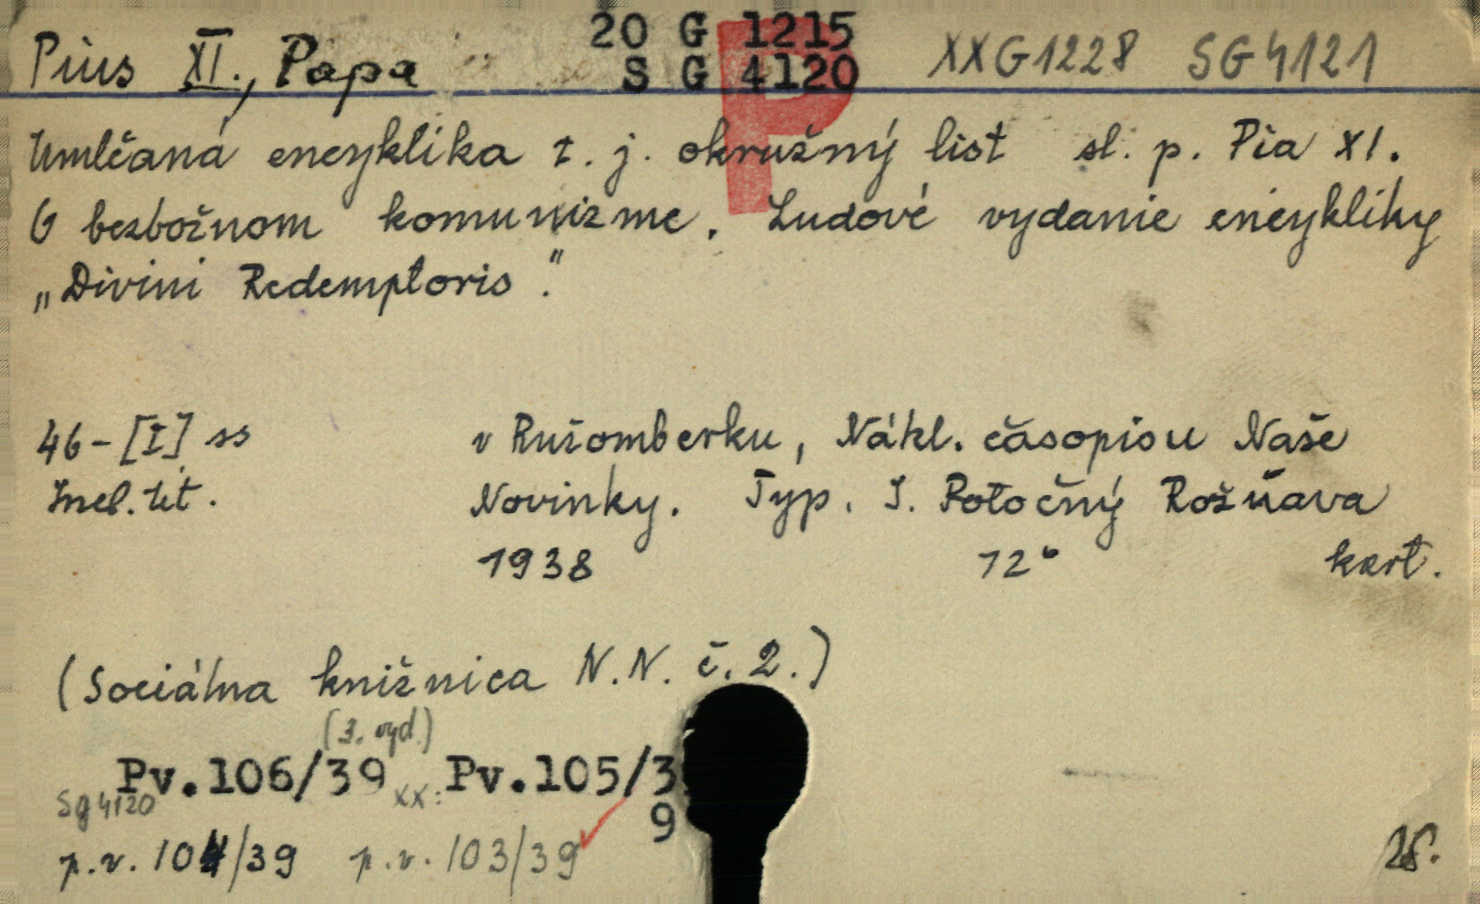 Pius XI., Papa 20 G 1215 XXG1228 SG4121
S G 4120
P
Umlčaná encyklika t. j. okružný list sl. p. Pia XI.
O bezbožnom komunizme. Ludové vydanie encykliky
„Divini Redemptoris".
46-[I] ss v Rušomberku, Nákl. časopisu Naše
Novinky. Typ. J. Potočný Rožňava
1938 12° kart.
(Sociálna knižnica N.N. č. 2.)
(3. vyd.)
Pv.106/39 xx: Pv.105/3
Sg4120 9
p.v. 104/39 p.v. 103/39